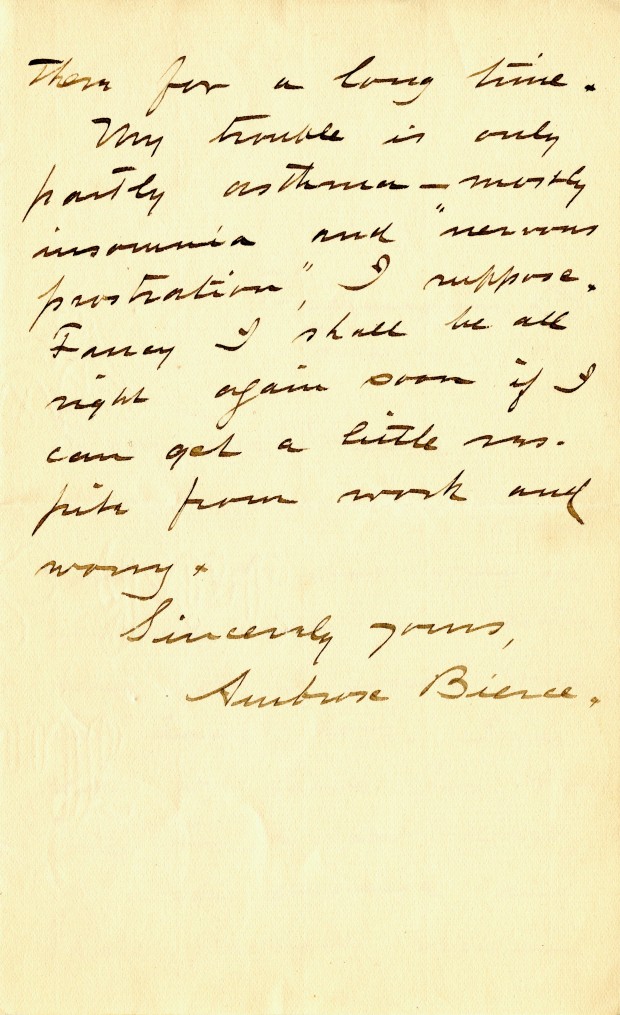 them for a long time.
My trouble is only
partly asthma—mostly
insomnia and "nervous
prostration", I suppose.
Fancy I shall be all
right again soon if I
can get a little res-
pite from work and
worry.
Sincerely yours,
Ambrose Bierce.